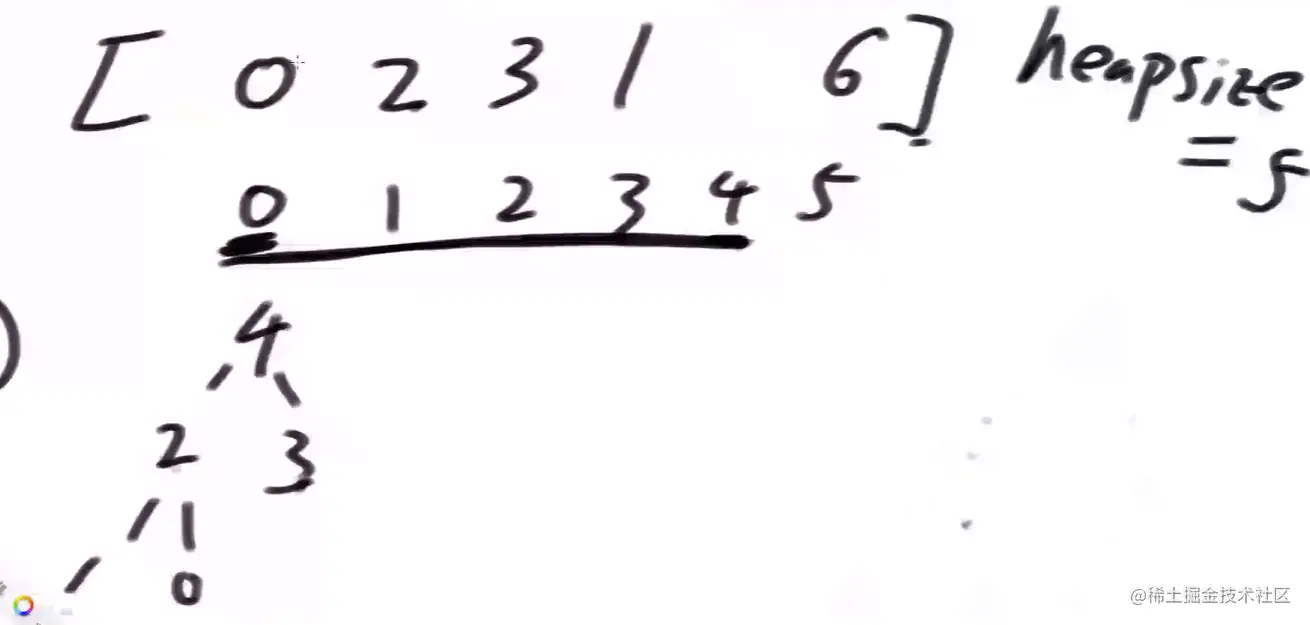 [ 0 2 3 1 6 ] heapsize
= 5
0 1 2 3 4 5
4
2 3
1 0
@稀土掘金技术社区